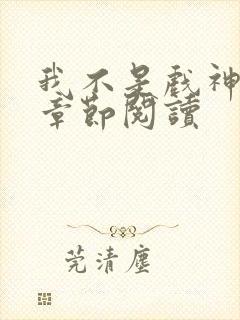 我不是戲神
章節閱讀
莞清塵